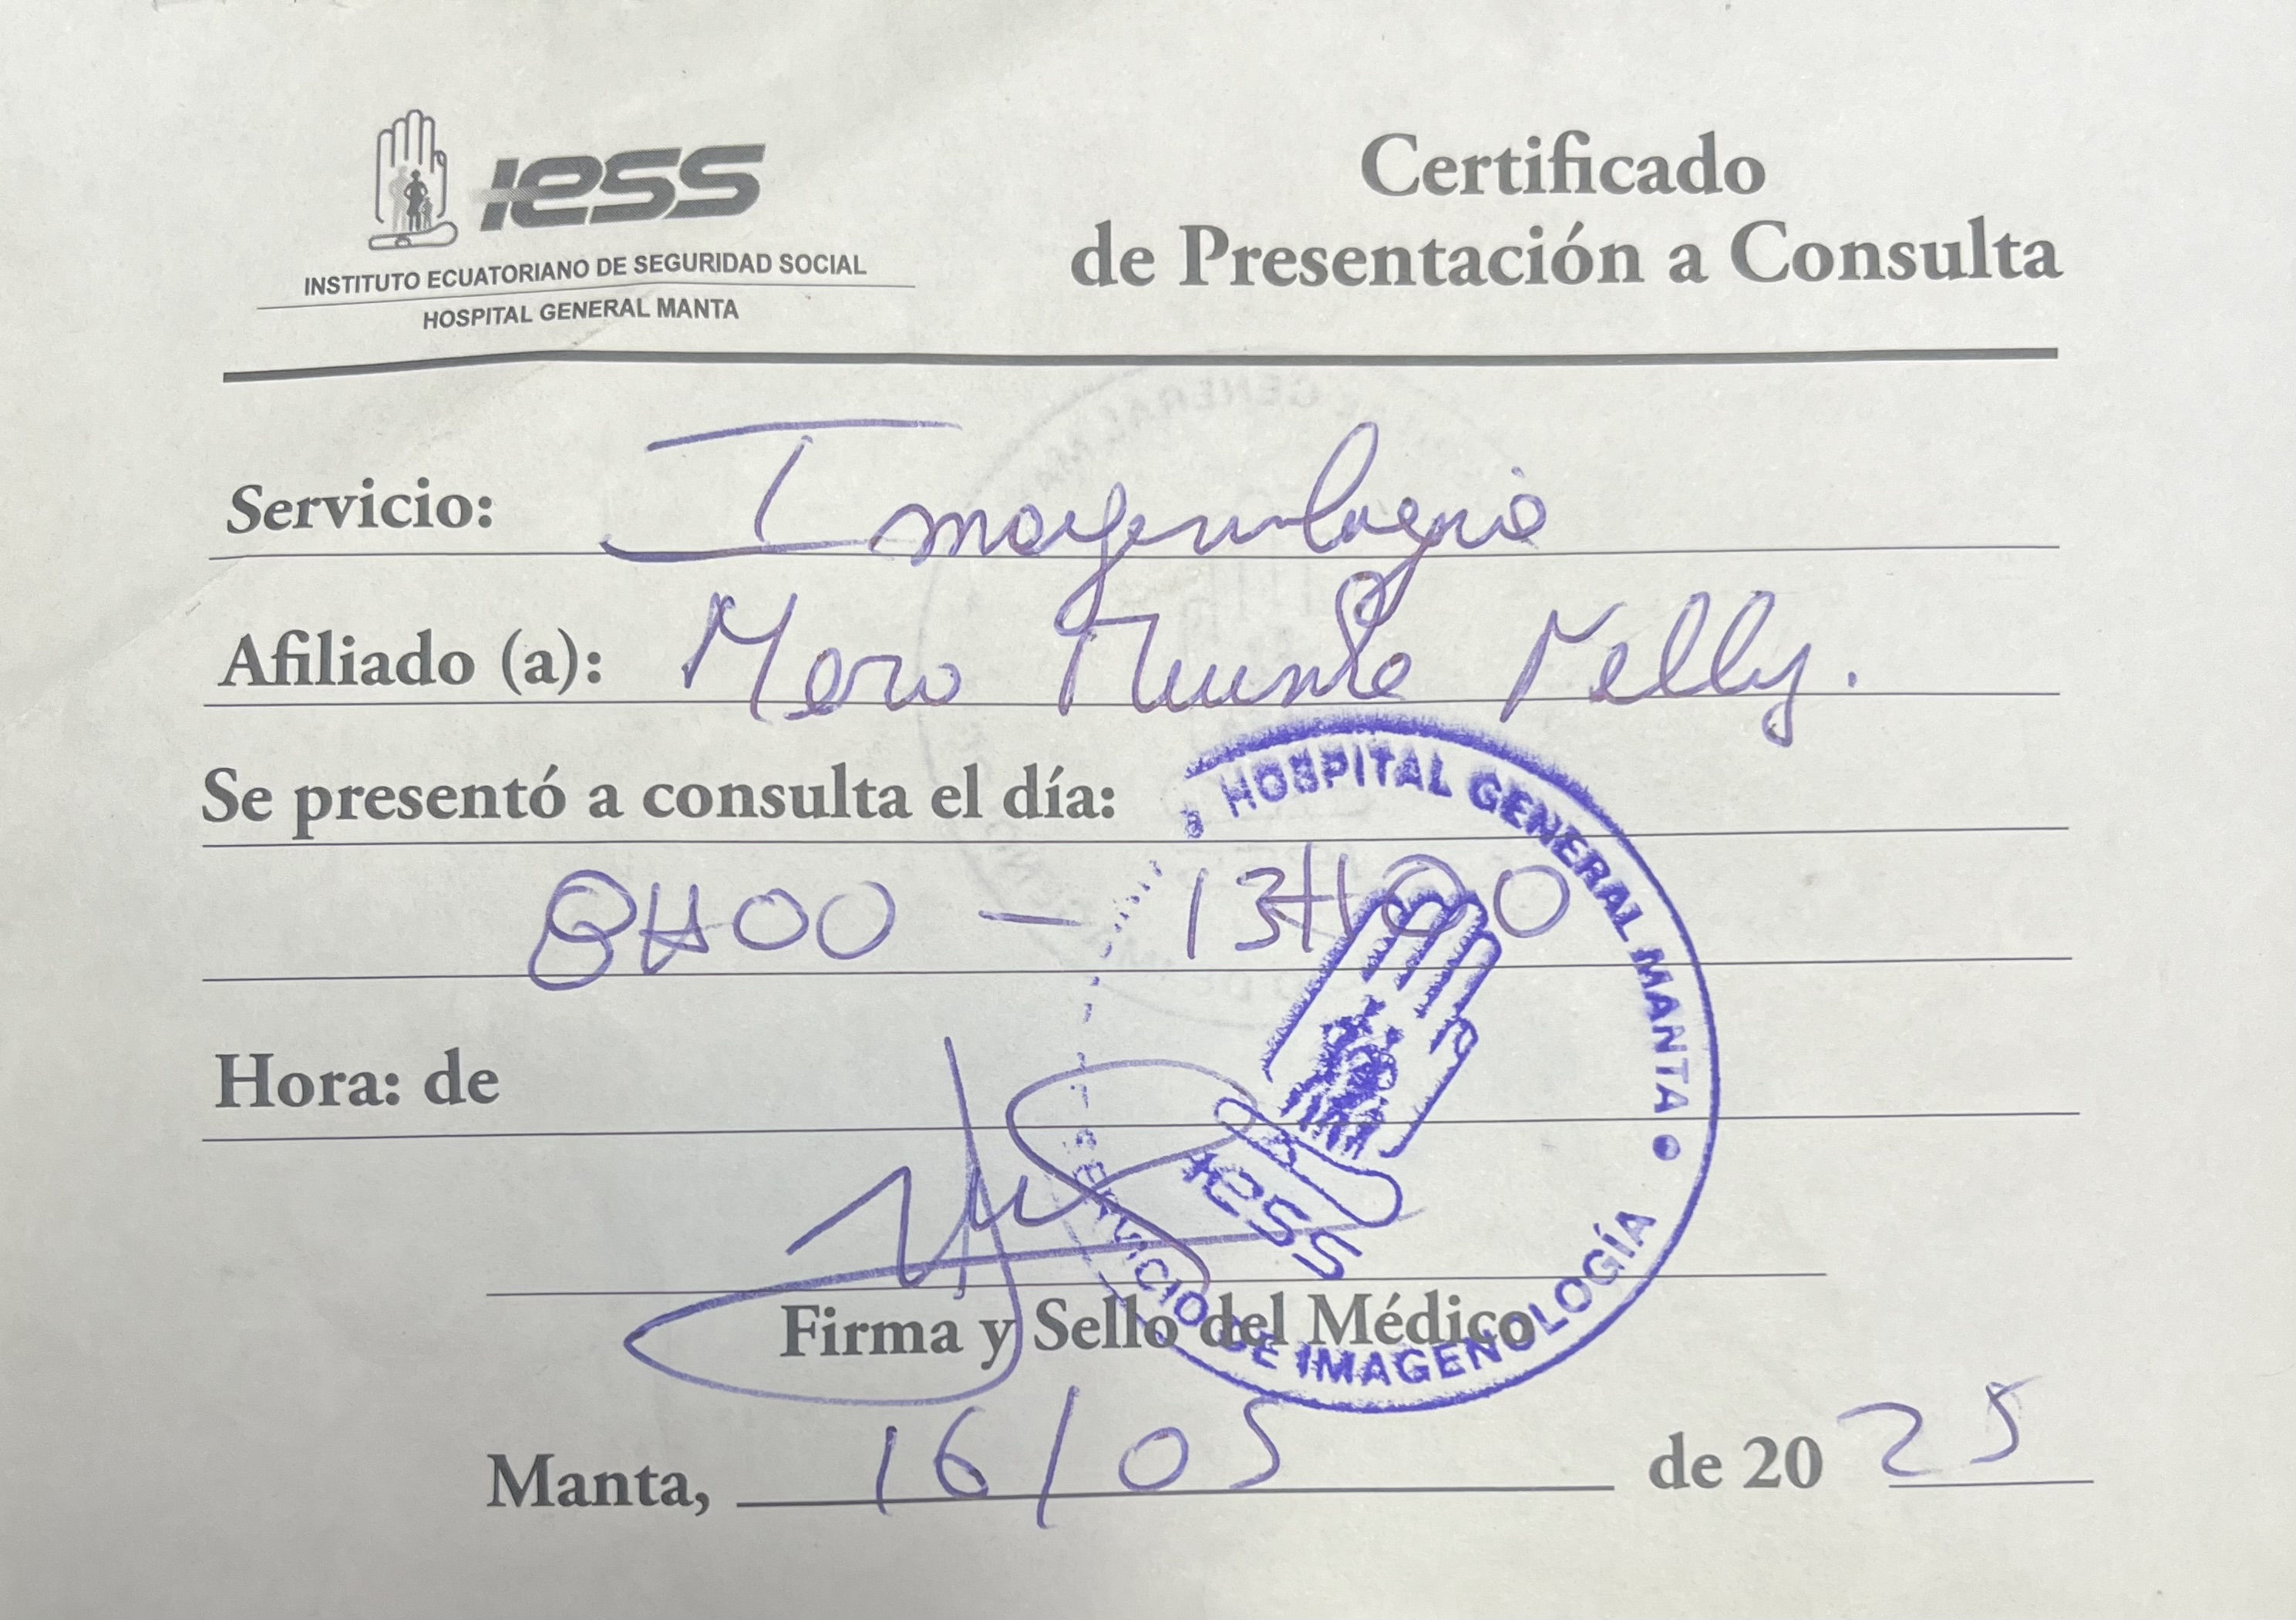 IESS
INSTITUTO ECUATORIANO DE SEGURIDAD SOCIAL
HOSPITAL GENERAL MANTA
Certificado
de Presentación a Consulta
Servicio: Imagenologia
Afiliado (a): Mero Muente Nelly.
Se presentó a consulta el día:
8H00 - 13H00
Hora: de
Firma y Sello del Médico
HOSPITAL GENERAL MANTA
IESS
SERVICIO DE IMAGENOLOGÍA
Manta, 16/05 de 2025